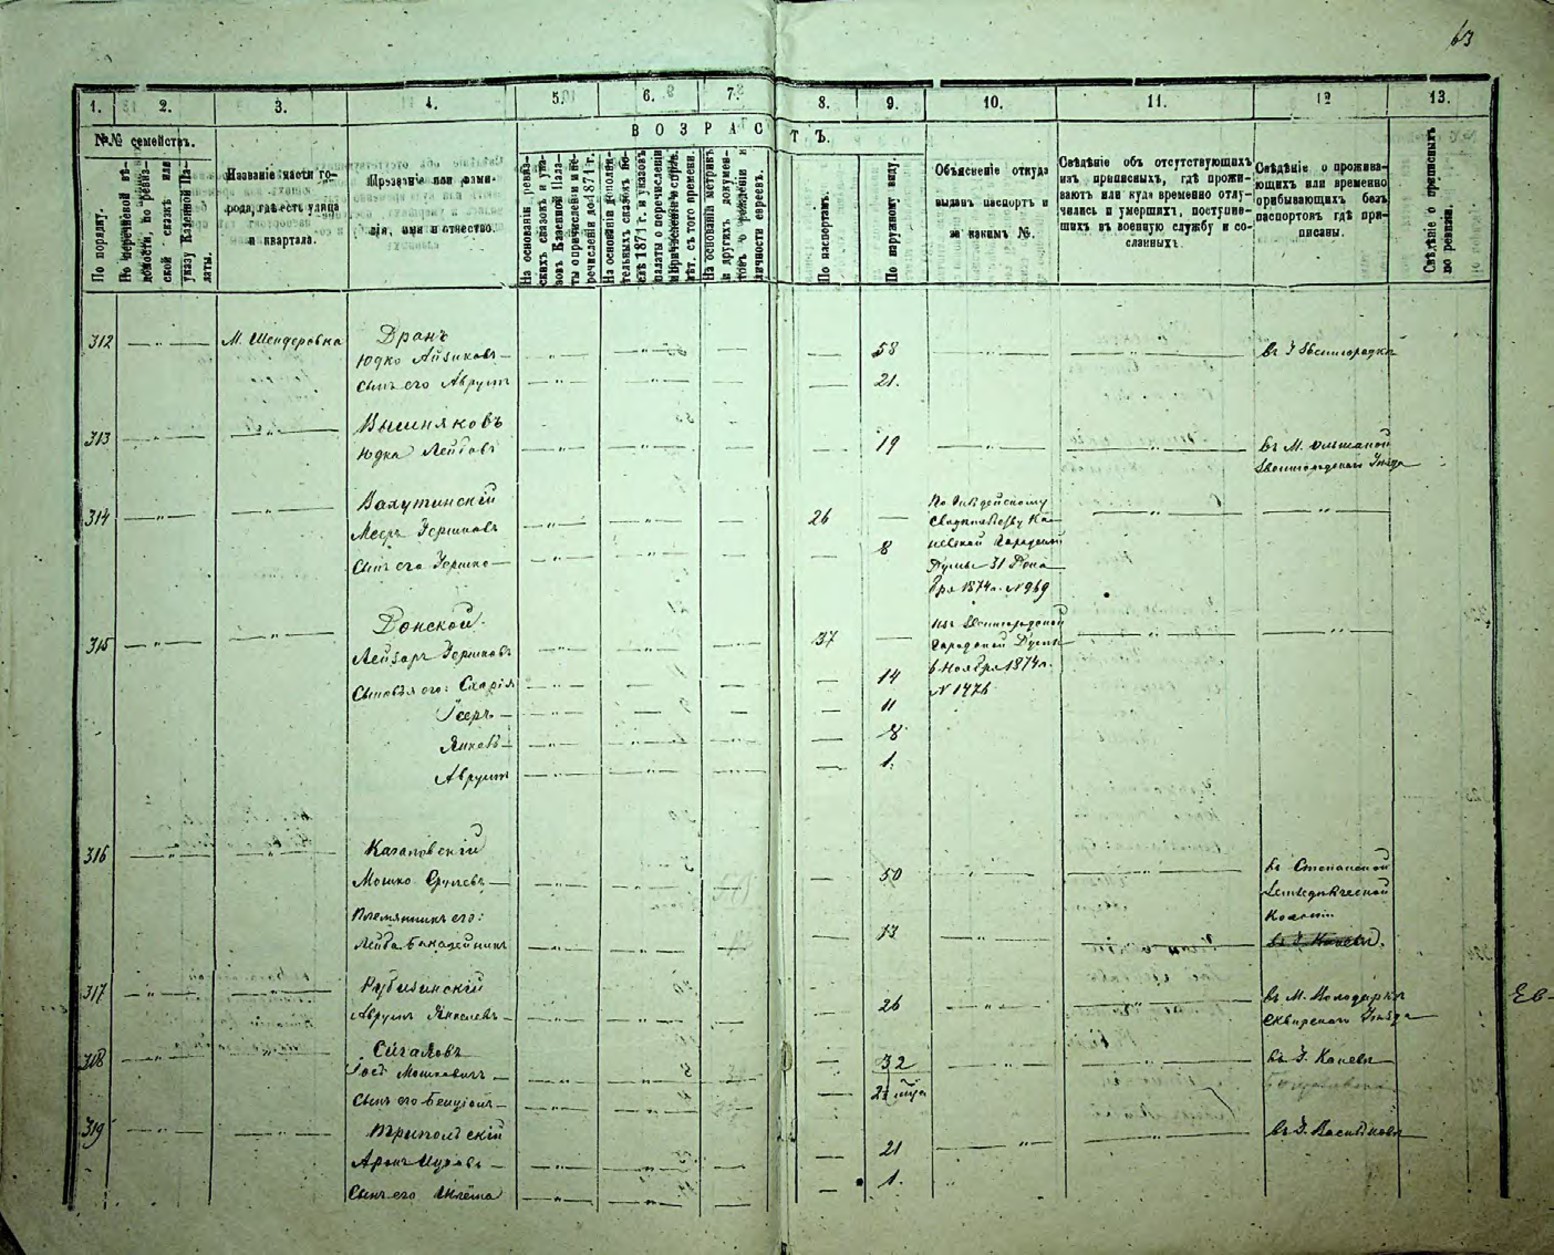 63
1. 2. 3. 4. 5. 6. 7. 8. 9. 10. 11. 12 13.
№№ семействъ.
ВОЗРАСТЪ.
По порядку.
По перечневой вѣ-
домости, по ревиз-
ской сказкѣ или
указу Казенной Па-
латы.
Названіе части го-
рода, гдѣ есть улица
и квартала.
Прозваніе или фами-
лія, имя и отчество.
На основаніи ревиз-
скихъ сказокъ и ука-
зовъ Казенной Пала-
ты о причисленіи и пе-
речисленіи до 1871 г.
На основаніи дополни-
тельныхъ сказокъ по-
слѣ 1871 г. и указовъ
палаты о перечисленіи
На основаніи метрикъ
и другихъ докумен-
товъ о рожденіи и
личности евреевъ.
По паспортамъ.
По наружному виду.
Объясненіе откуда
выданъ паспортъ и
за какимъ №.
Свѣдѣніе объ отсутствующихъ
изъ приписныхъ, гдѣ прожи-
ваютъ или куда временно отлу-
чились и умершихъ, поступив-
шихъ въ военную службу и со-
сланныхъ.
Свѣдѣніе о прожива-
ющихъ или временно
прибывающихъ безъ
паспортовъ гдѣ при-
писаны.
Свѣдѣніе о приписныхъ
по ревизіи.
312 М. Шендеровка Дранъ
Юдко Айзиковъ 58 въ Г. Звенигородкѣ
Сынъ его Аврумъ 21.
313 Вишняковъ
Юдка Лейбовъ 19 въ М. Ольшаной
Звенигородскаго Уѣзда
314 Ватутинскій
Мееръ Гершковъ 26
Сынъ его Гершко 8
Городской
Думы 31
бря 1874 г. №969
315 Донской
Лейзоръ Гершковъ 37
Изъ Звенигородской
Городской Думы
6 Ноября 1874 г.
№ 1476
Сыновья его: Сахарія 14
11
Янкель 8
Аврумъ 1.
316 Казановскій
Мошко Срулевъ 50 въ Степановской
Земледѣлческой
Колоніи
Племянникъ его:
Лейба 13 въ Г. Каневѣ.
317
Аврумъ Янкелевъ 26 въ М. Володаркѣ
Сквирскаго Уѣзда
Ев-
318 Сигаловъ
Іосъ Мошковичъ 32 въ Г. Каневѣ
Сынъ его Бенціонъ
319 Трипольскій
Аронъ Ицковъ 21 въ Г. Васильковѣ
Сынъ его 1.